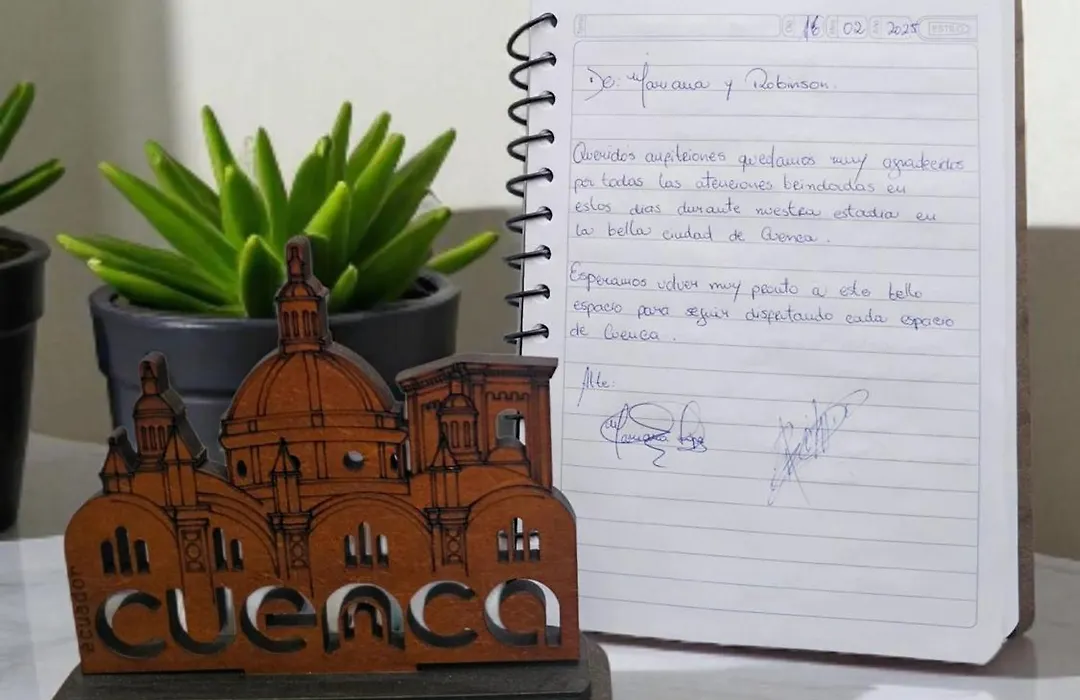 16 02 2025
De: Mariana y Robinson.
Queridos anfitriones quedamos muy agradecidos
por todas las atenciones brindadas en
estos dias durante nuestra estadia en
la bella ciudad de Cuenca.
Esperamos volver muy pronto a este bello
espacio para seguir disfrutando cada espacio
de Cuenca.
Atte:
Mariana
ecuador
cuenca